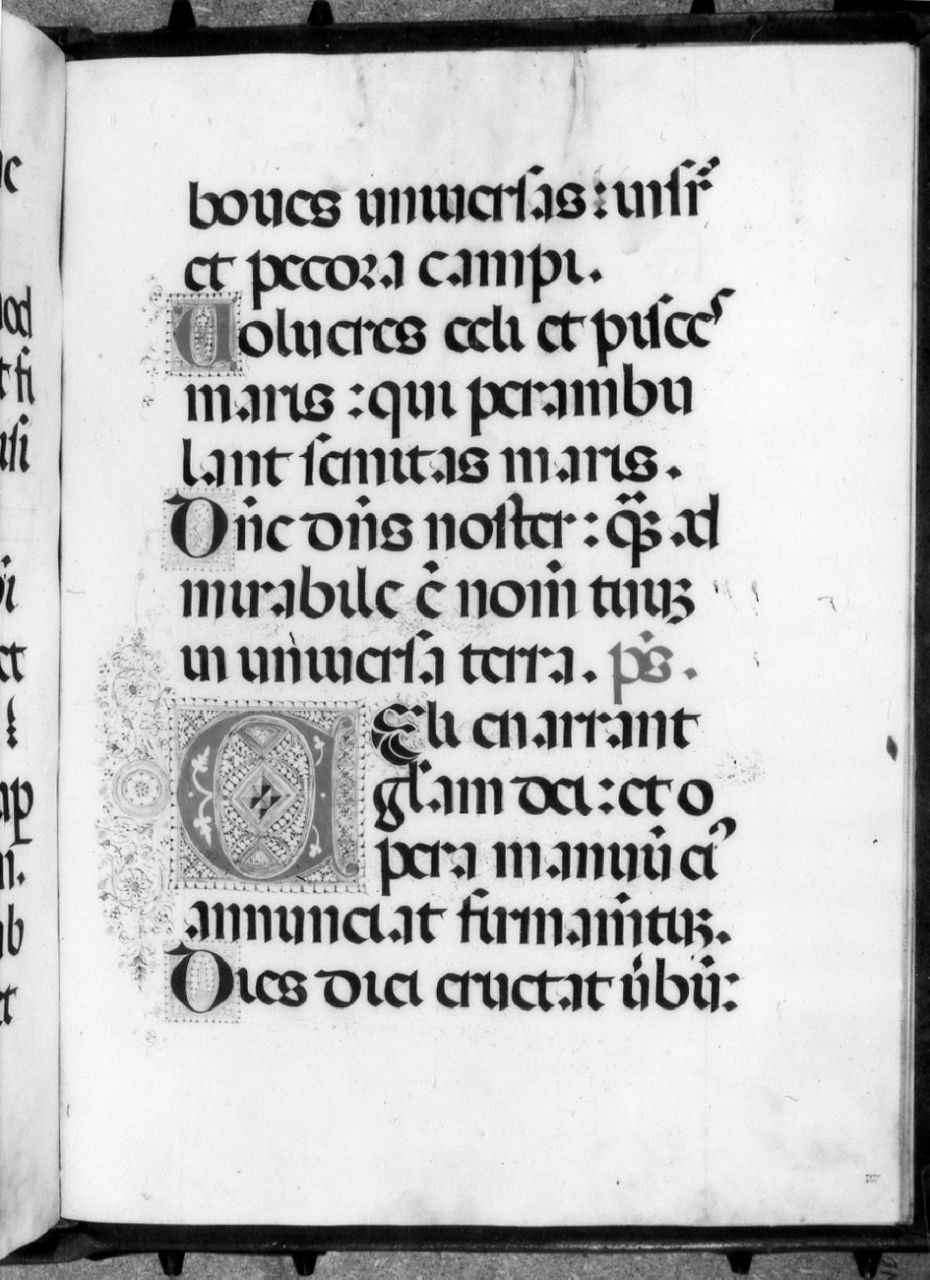 boues uniuersas: insup̄
et pecora campi.
Uolucres celi et pisces
maris: qui perambu
lant semitas maris.
Dn̄e dn̄s noster: q̄ꝫ ad
mirabile ē nom̄ tuuꝫ
in uniuersa terra. ps̄.
Celi enarrant
gl̄am dei: et o
pera manuū eiꝰ
annunciat firmam̄tuꝫ.
Dies diei eructat ūbū: